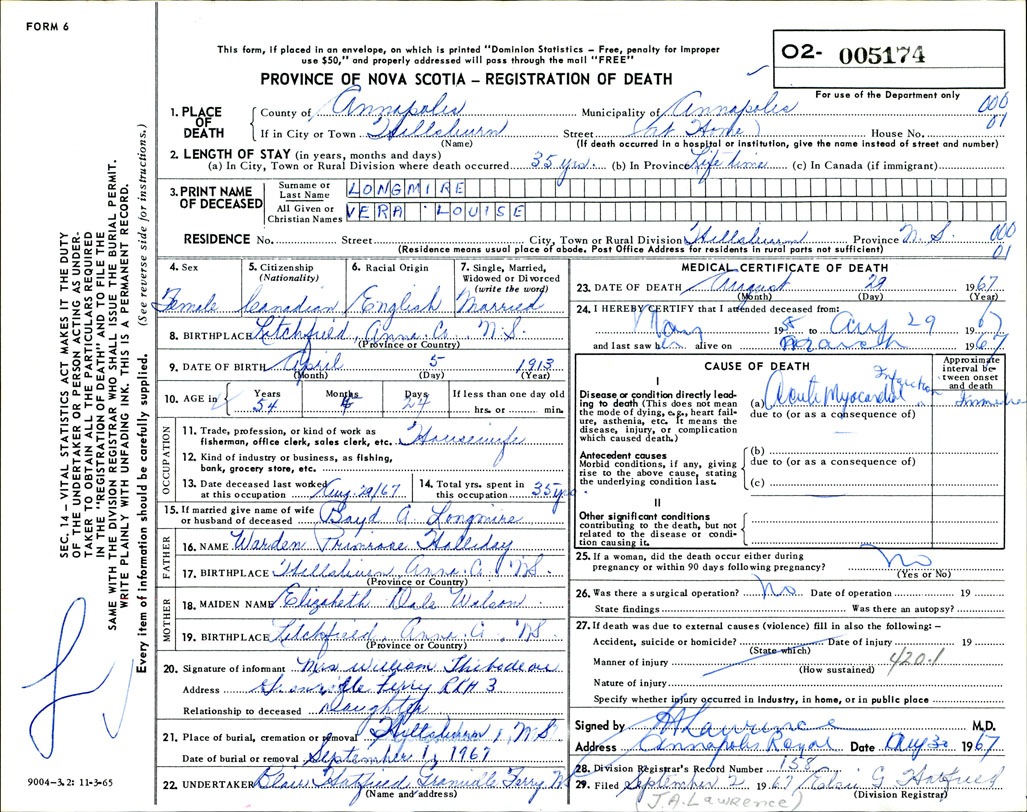 FORM 6
This form, if placed in an envelope, on which is printed "Dominion Statistics – Free, penalty for improper
use $50," and properly addressed will pass through the mail "FREE"
PROVINCE OF NOVA SCOTIA – REGISTRATION OF DEATH
O2- 005174
For use of the Department only
1. PLACE OF DEATH County of Annapolis Municipality of Annapolis 000
If in City or Town Hillsburn Street (At Home) House No. 01
(Name) (If death occurred in a hospital or institution, give the name instead of street and number)
2. LENGTH OF STAY (in years, months and days)
(a) In City, Town or Rural Division where death occurred 35 yrs. (b) In Province Life time (c) In Canada (if immigrant)
3. PRINT NAME OF DECEASED
Surname or Last Name LONGMIRE
All Given or Christian Names VERA LOUISE
RESIDENCE No. Street City, Town or Rural Division Hillsburn Province N.S. 000
(Residence means usual place of abode. Post Office Address for residents in rural parts not sufficient) 01
4. Sex
Female
5. Citizenship
(Nationality)
Canadian
6. Racial Origin
English
7. Single, Married,
Widowed or Divorced
(write the word)
Married
8. BIRTHPLACE Litchfield, Anna. Co. N.S.
(Province or Country)
9. DATE OF BIRTH April 5 1913
(Month) (Day) (Year)
10. AGE in Years Months Days If less than one day old
54 4 24 hrs. or min.
OCCUPATION
11. Trade, profession, or kind of work as
fisherman, office clerk, sales clerk, etc. Housewife
12. Kind of industry or business, as fishing,
bank, grocery store, etc.
13. Date deceased last worked
at this occupation Aug. 29/67
14. Total yrs. spent in
this occupation 35 yrs
15. If married give name of wife
or husband of deceased Boyd A Longmire
FATHER
16. NAME Warden Primrose Halliday
17. BIRTHPLACE Hillsburn, Anna. Co. N.S.
(Province or Country)
MOTHER
18. MAIDEN NAME Elizabeth Dale Watson
19. BIRTHPLACE Litchfield, Anna. Co., N.S.
(Province or Country)
20. Signature of informant Mrs William Thibodeau
Address Granville Ferry RR# 3
Relationship to deceased Daughter
21. Place of burial, cremation or removal Hillsburn, N.S.
Date of burial or removal September 1, 1967
22. UNDERTAKER Hatfield Granville Ferry NS
(Name and address)
MEDICAL CERTIFICATE OF DEATH
23. DATE OF DEATH August 29 1967
(Month) (Day) (Year)
24. I HEREBY CERTIFY that I attended deceased from:
19 to Aug 29 1967
and last saw her alive on March 1967
CAUSE OF DEATH
Approximate
interval be-
tween onset
and death
I
Disease or condition directly lead-
ing to death (This does not mean
the mode of dying, e.g., heart fail-
ure, asthenia, etc. It means the
disease, injury, or complication
which caused death.)
(a) Acute Myocardial Infarction
due to (or as a consequence of)
Antecedent causes
Morbid conditions, if any, giving
rise to the above cause, stating
the underlying condition last.
(b)
due to (or as a consequence of)
(c)
II
Other significant conditions
contributing to the death, but not
related to the disease or condi-
tion causing it.
25. If a woman, did the death occur either during
pregnancy or within 90 days following pregnancy? No
(Yes or No)
26. Was there a surgical operation? No Date of operation 19
State findings Was there an autopsy?
27. If death was due to external causes (violence) fill in also the following: –
Accident, suicide or homicide? Date of injury 19
(State which)
Manner of injury 420.1
(How sustained)
Nature of injury
Specify whether injury occurred in Industry, in home, or in public place
Signed by A Lawrence M.D.
Address Annapolis Royal Date Aug 30 1967
28. Division Registrar's Record Number 158
29. Filed September 2 1967 G Hatfield
(Division Registrar)
J.A. Lawrence)
SEC. 14 – VITAL STATISTICS ACT MAKES IT THE DUTY
OF THE UNDERTAKER OR PERSON ACTING AS UNDER-
TAKER TO OBTAIN ALL THE PARTICULARS REQUIRED
IN THE "REGISTRATION OF DEATH" AND TO FILE THE
SAME WITH THE DIVISION REGISTRAR WHO SHALL ISSUE THE BURIAL PERMIT.
WRITE PLAINLY WITH UNFADING INK. THIS IS A PERMANENT RECORD.
Every item of information should be carefully supplied. (See reverse side for instructions.)
9004-3.2: 11-3-65